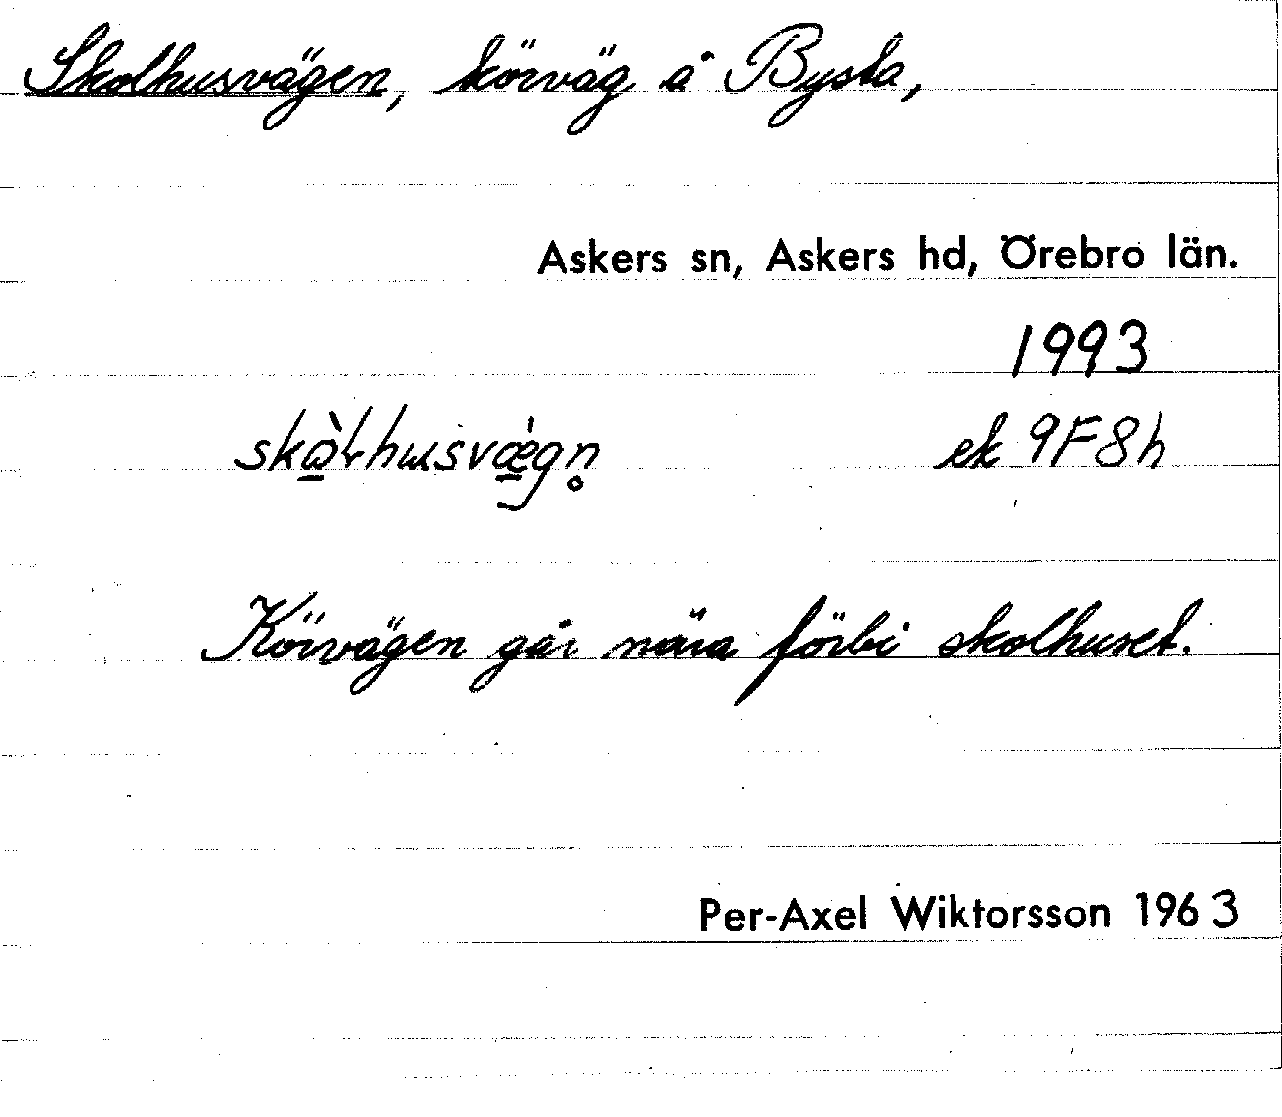 Skolhusvägen, körväg å Bysta,
Askers sn, Askers hd, Örebro län.
1993
ek 9F8h
Körvägen går nära förbi skolhuset.
Per-Axel Wiktorsson 1963